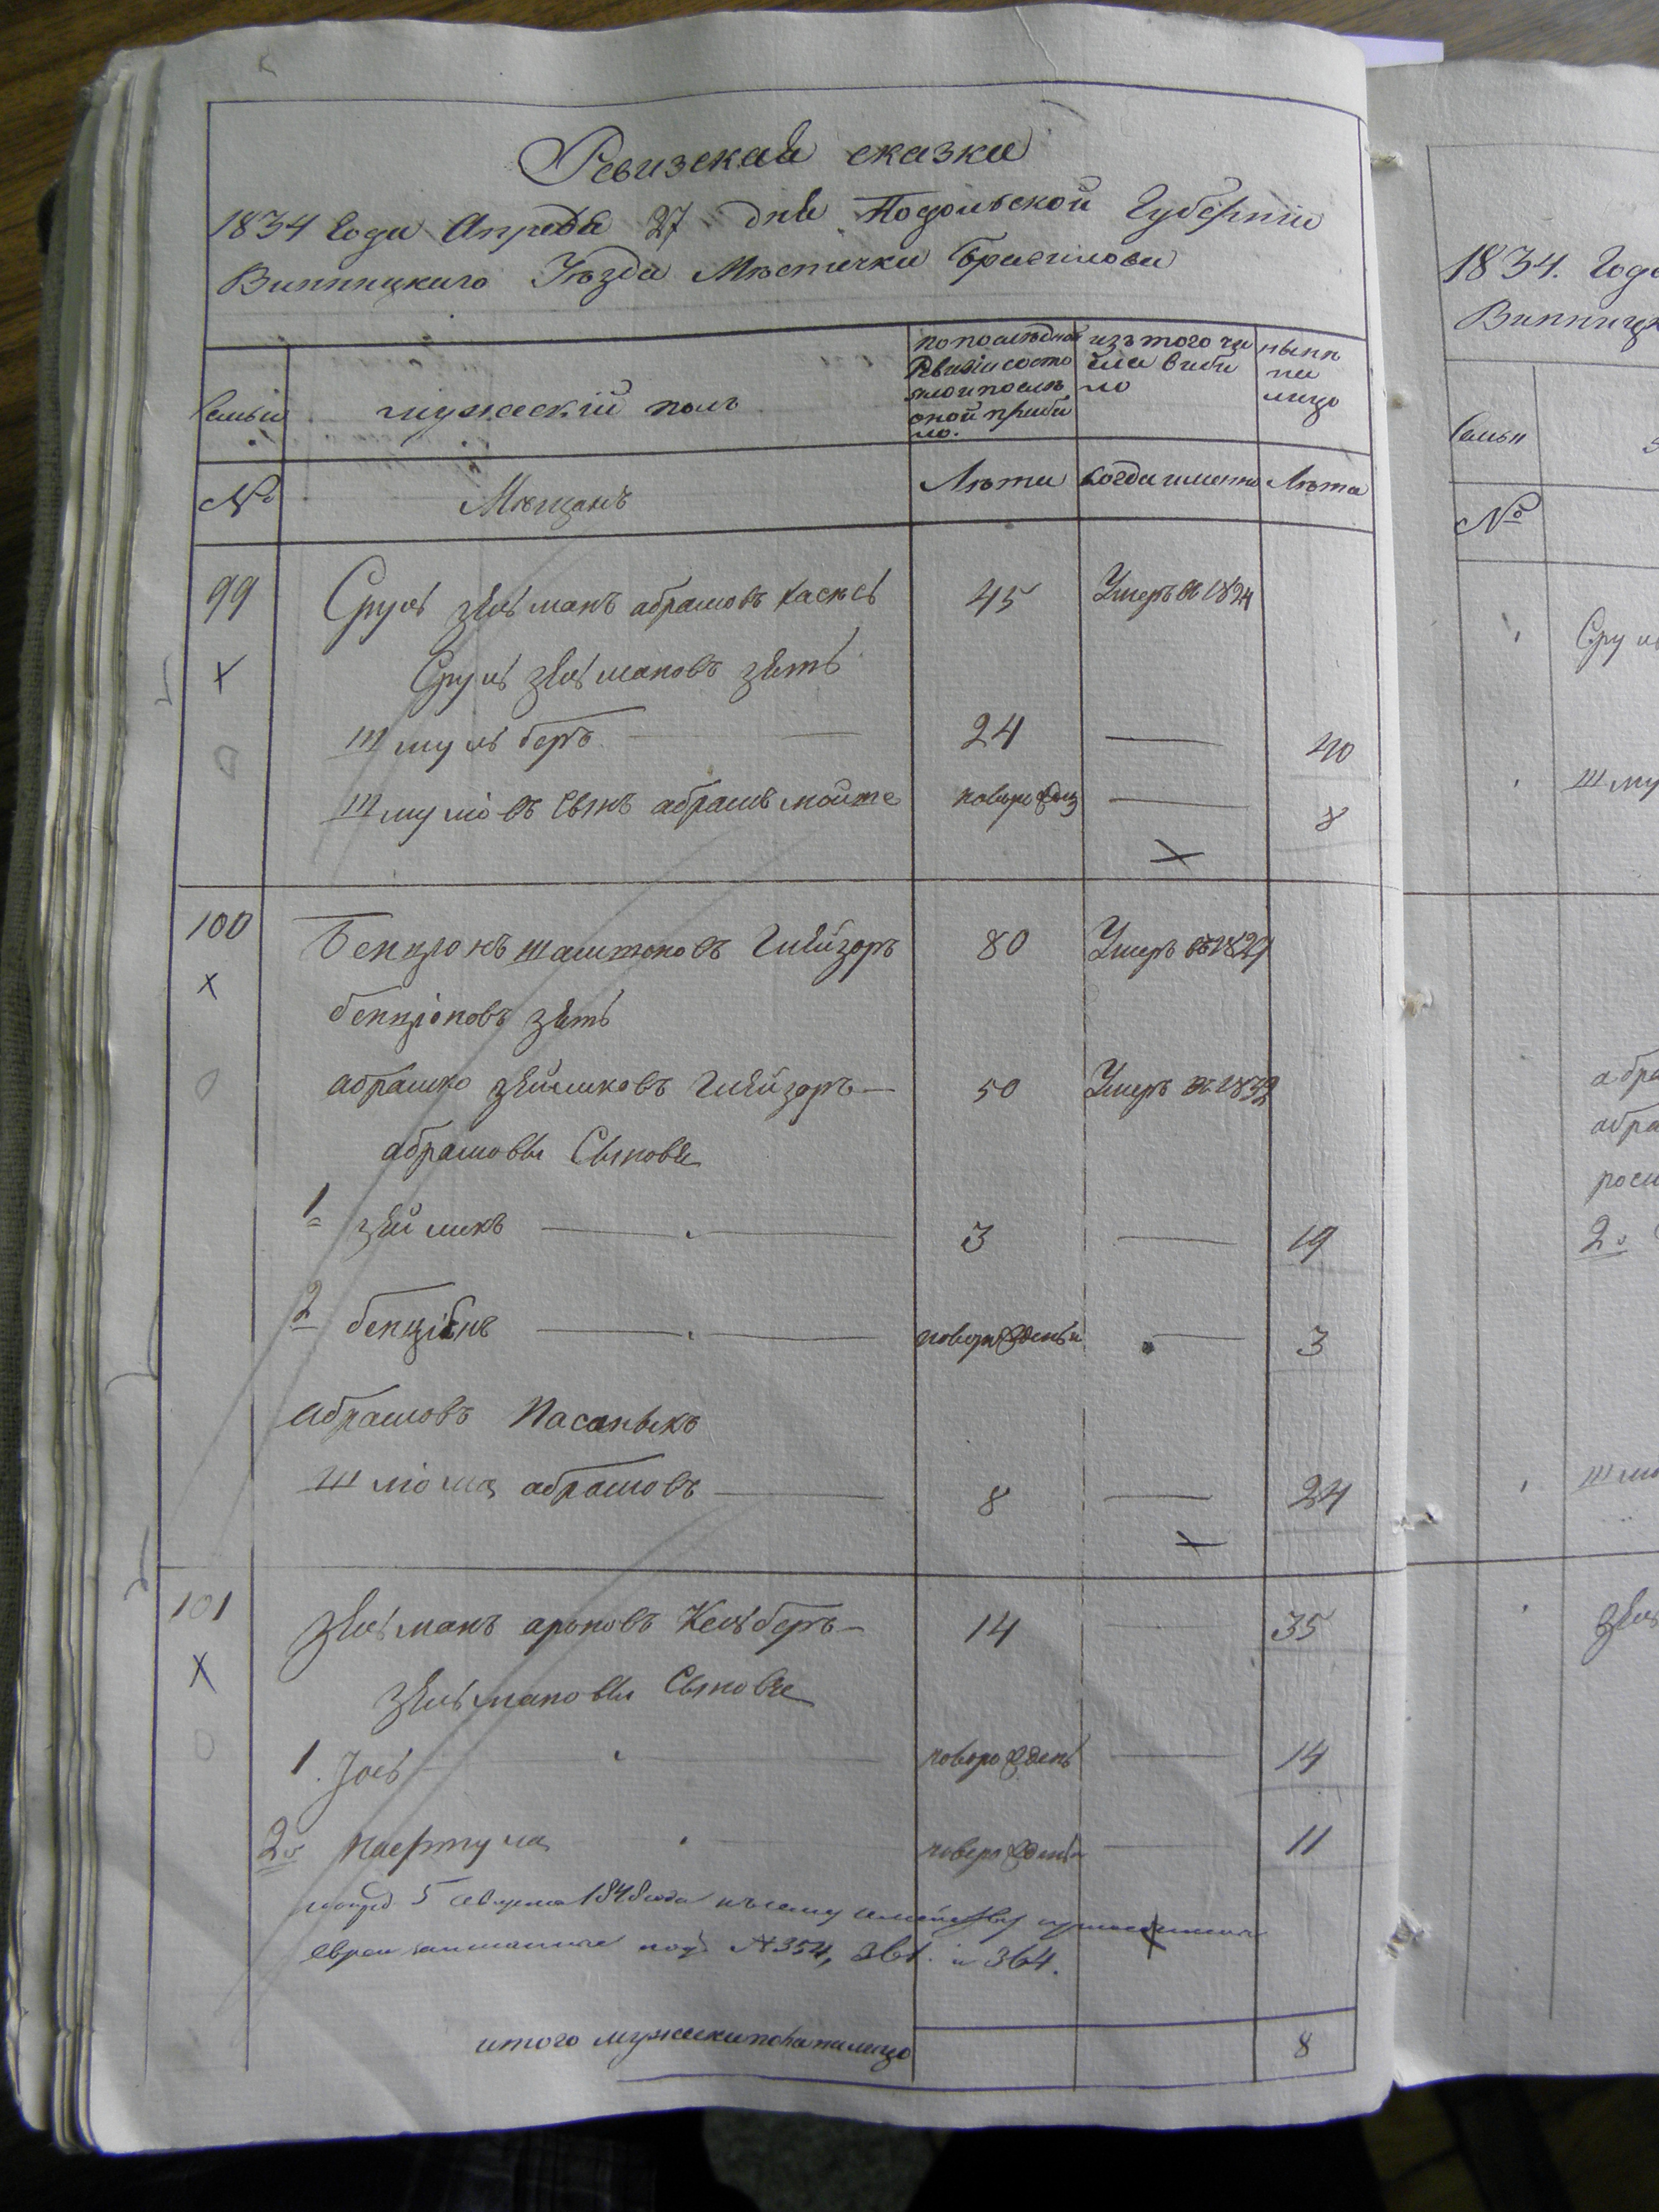 Ревизская сказка
1834 Года Апреля 27 дня Подольской Губернии
Винницкаго Уѣзда Мѣстечка Браилова
Семьи
мужескій полъ
по последней Ревизіи состояло и после оной прибыло.
изъ того числа выбыло
нынѣ на лицо
№
Мѣщанъ
Лѣта
Когда именно
Лѣта
99 Сруль Зельманъ абрамовъ 45 Умеръ въ 1824
Сруль Зельмановъ зять
Шмуль беръ 24 40
Шмулёвъ Сынъ абрамъ мойше новорожд 8
100 Бенціонъ Глейзеръ 80 Умеръ въ 1829
бенціоновъ зять
абрамко Зейликовъ Глейзеръ 50 Умеръ въ 1832
абрамовы Сыновя
1 Зейликъ 3 19
2 бенціонъ новорожденъ 3 
абрамовъ Пасыныкъ
Шлёма абрамовъ 8 24
101 Зельманъ ароновъ Кельберъ 14 35
Зельмановы Сыновя
1. Іось новорожденъ 14
2. 11
5 августа 1848 года къ сему семейству
евреи записанные подъ № 354, 361. и 364.
итого мужеска пола на лицо 8
1834. Года
Винницк
Семьи
№
Сруль
Шму
абра
абра
2.
Шлё
Зель